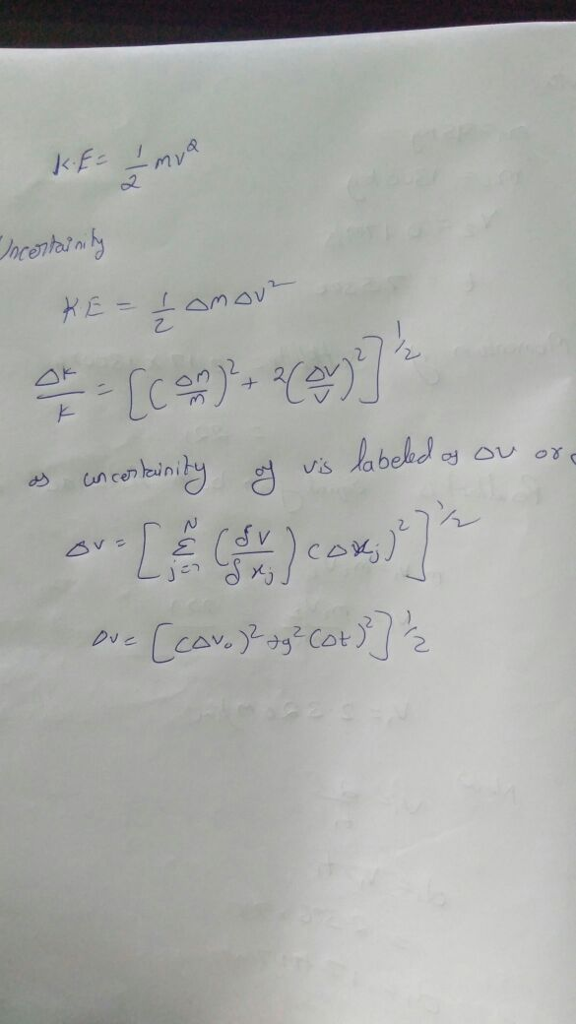 K.E = 1/2 mv²
Uncertainity
K.E = 1/2 Δm Δv²
ΔK/K = [(Δm/m)² + 2(Δv/v)²]^1/2
as uncertainity of v is labeled as Δv or
Δv = [Σ_{j=1}^{N} (δv/δx_j) (Δx_j)²]^1/2
Δv = [(Δv₀)² + g²(Δt)²]^1/2